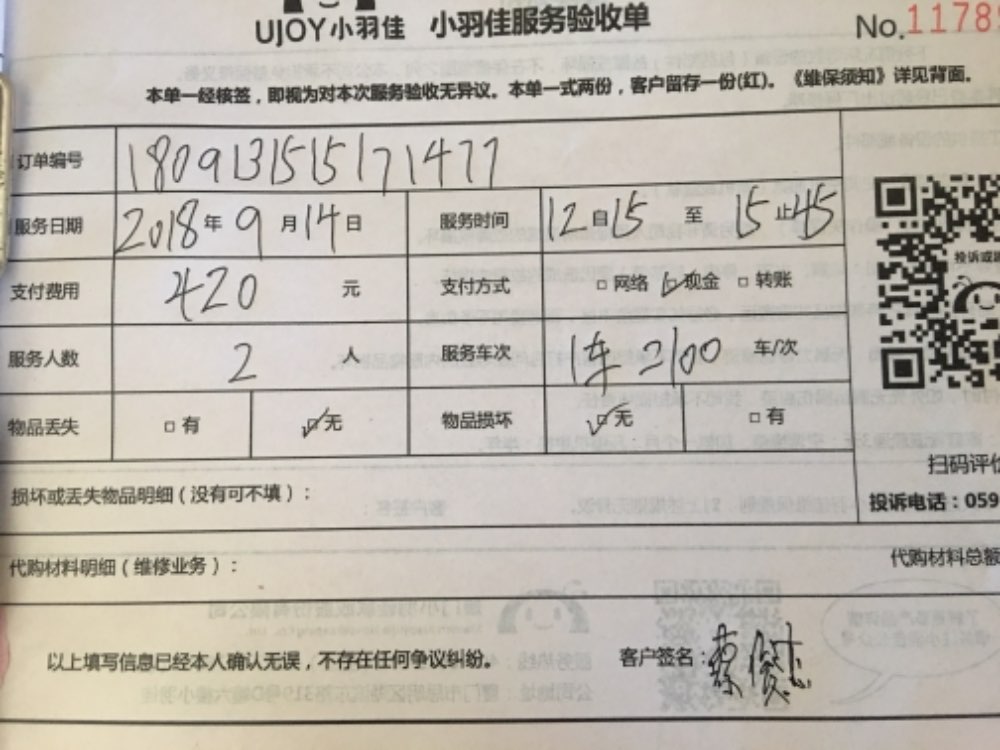 UJOY小羽佳 小羽佳服务验收单 No.11789
本单一经核签，即视为对本次服务验收无异议。本单一式两份，客户留存一份(红)。《维保须知》详见背面。
订单编号 180913155171477
服务日期 2018年9月14日 服务时间 12自15 至 15止45
支付费用 420 元 支付方式 □网络 ☑现金 □转账
服务人数 2 人 服务车次 1车 2100 车/次
物品丢失 □有 ☑无 物品损坏 ☑无 □有
投诉或
扫码评价
损坏或丢失物品明细（没有可不填）：
投诉电话：059
代购材料明细（维修业务）：
代购材料总额
以上填写信息已经本人确认无误，不存在任何争议纠纷。 客户签名：